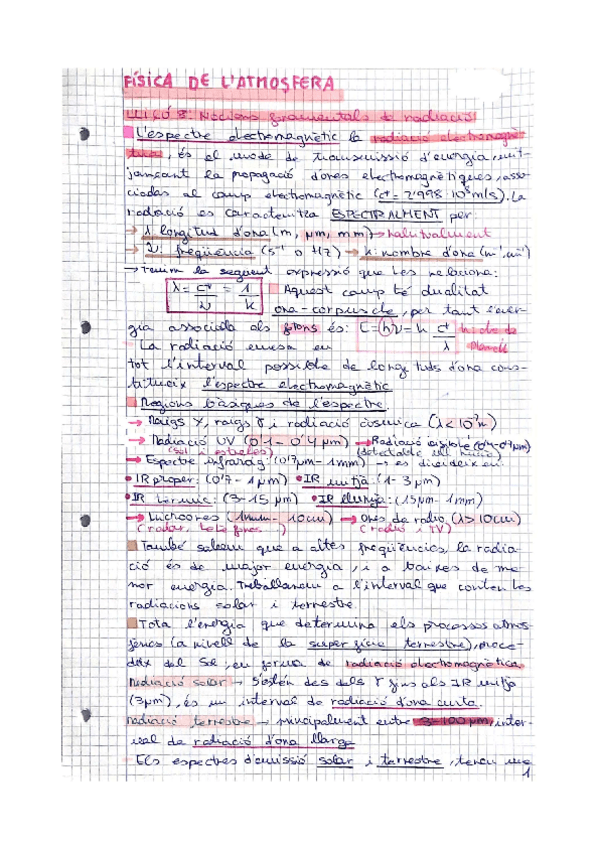 FÍSICA DE L'ATMOSFERA
LLIÇÓ 8: Nocions fonamentals de radiació
L'espectre electromagnètic la radiació electromagnè-
tica, és el mode de transmissió d'energia, mit-
jançant la propagació d'ones electromagnètiques, asso-
ciades al camp electromagnètic (c* = 2'998·10⁸m/s). La
radiació es caracteritza ESPECTRALMENT per:
→ λ longitud d'ona (m, μm, mm) → habitualment
→ ν: freqüència (s⁻¹ o Hz) → k: nombre d'ona (m⁻¹, cm⁻¹)
→ Tenim la següent expressió que les relaciona:
λ = c*/ν = 1/k Aquest camp té dualitat
ona-corpuscle, per tant l'ener-
gia associada als fotons és: E = hν = h c*/λ h: cte de Planck
La radiació emesa en
tot l'interval possible de longituds d'ona cons-
titueix l'espectre electromagnètic
Regions bàsiques de l'espectre:
→ Raigs X, raigs γ i radiació còsmica
→ Radiació UV (0'1 - 0'4 μm) → Radiació visible (0'4-0'7μm)
(sol i estrelles) (detectable ull humà)
→ Espectre infraroig: (0'7μm - 1mm) → es divideix en:
• IR proper: (0'7 - 1 μm) • IR mitjà: (1 - 3 μm)
• IR tèrmic: (3 - 15 μm) • IR llunyà: (15μm - 1mm)
→ Microones (1mm - 10cm) → Ones de ràdio (λ > 10cm)
(radar, telèfones) (ràdio i TV)
També sabem que a altes freqüències, la radia-
ció és de major energia, i a baixes de me-
nor energia. Treballarem a l'interval que conten les
radiacions solar i terrestre.
Tota l'energia que determina els processos atmos-
fèrics (a nivell de la superfície terrestre), proce-
deix del Sol, en forma de radiació electromagnètica
Radiació solar → S'estén des dels γ fins als IR mitjà
(3μm), és un interval de radiació d'ona curta.
Radiació terrestre → principalment entre 3-100 μm, inter-
val de radiació d'ona llarga
Els espectres d'emissió solar i terrestre, tenen una
1